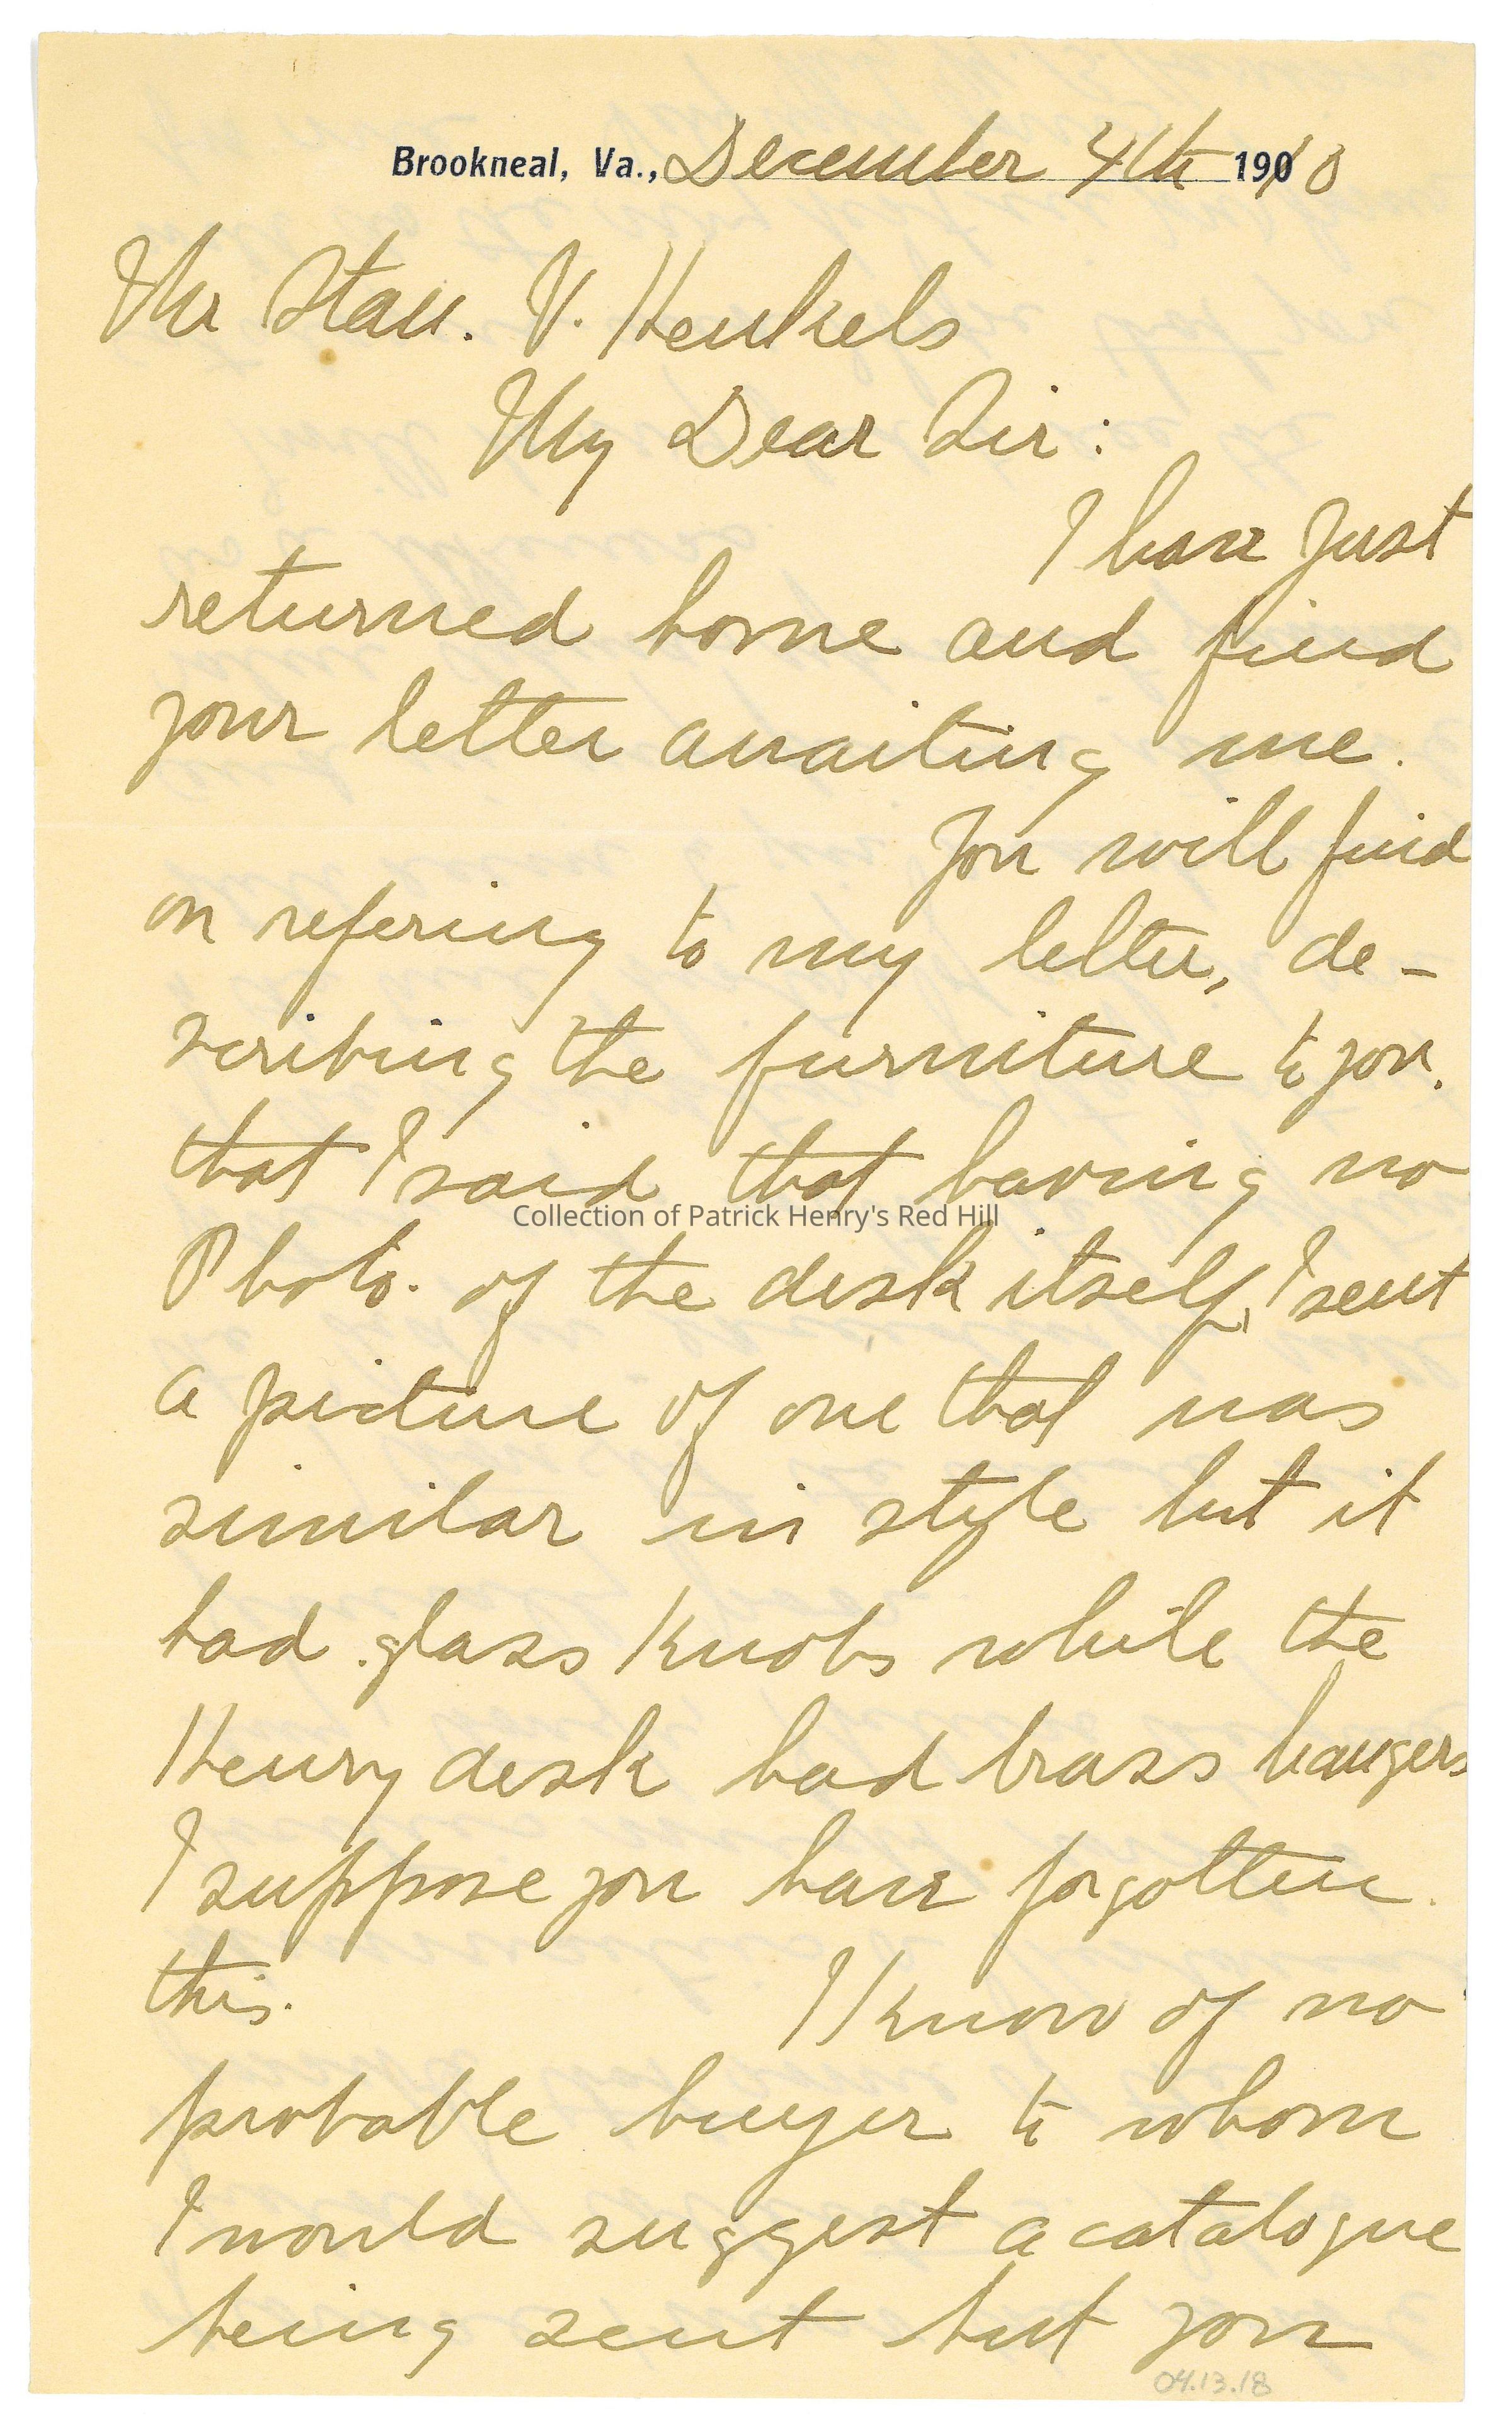 Brookneal, Va., December 4th 1910
Mr Stan. V. Henkels
My Dear Sir:
I have just
returned home and find
your letter awaiting me.
You will find
on refering to my letter, de-
scribing the furniture to you.
that I said that having no
Photo. of the desk itself, I sent
a picture of one that was
similar in style but it
had glass knobs while the
Henry desk had brass hangers
I suppose you have forgotten
this. I know of no
probable buyer to whom
I would suggest a catalogue
being sent but you
Collection of Patrick Henry's Red Hill
04.13.18